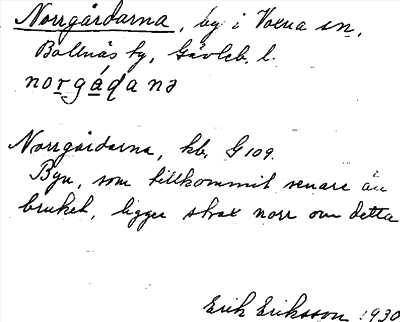 Norrgårdarna, by i Voxna sn,
Bollnäs tg, Gävleb. l.
norgáḍanə
Norrgårdarna, kb, G 109.
Byn, som tillkommit senare än
bruket, ligger strax norr om detta
Erik Eriksson 1930